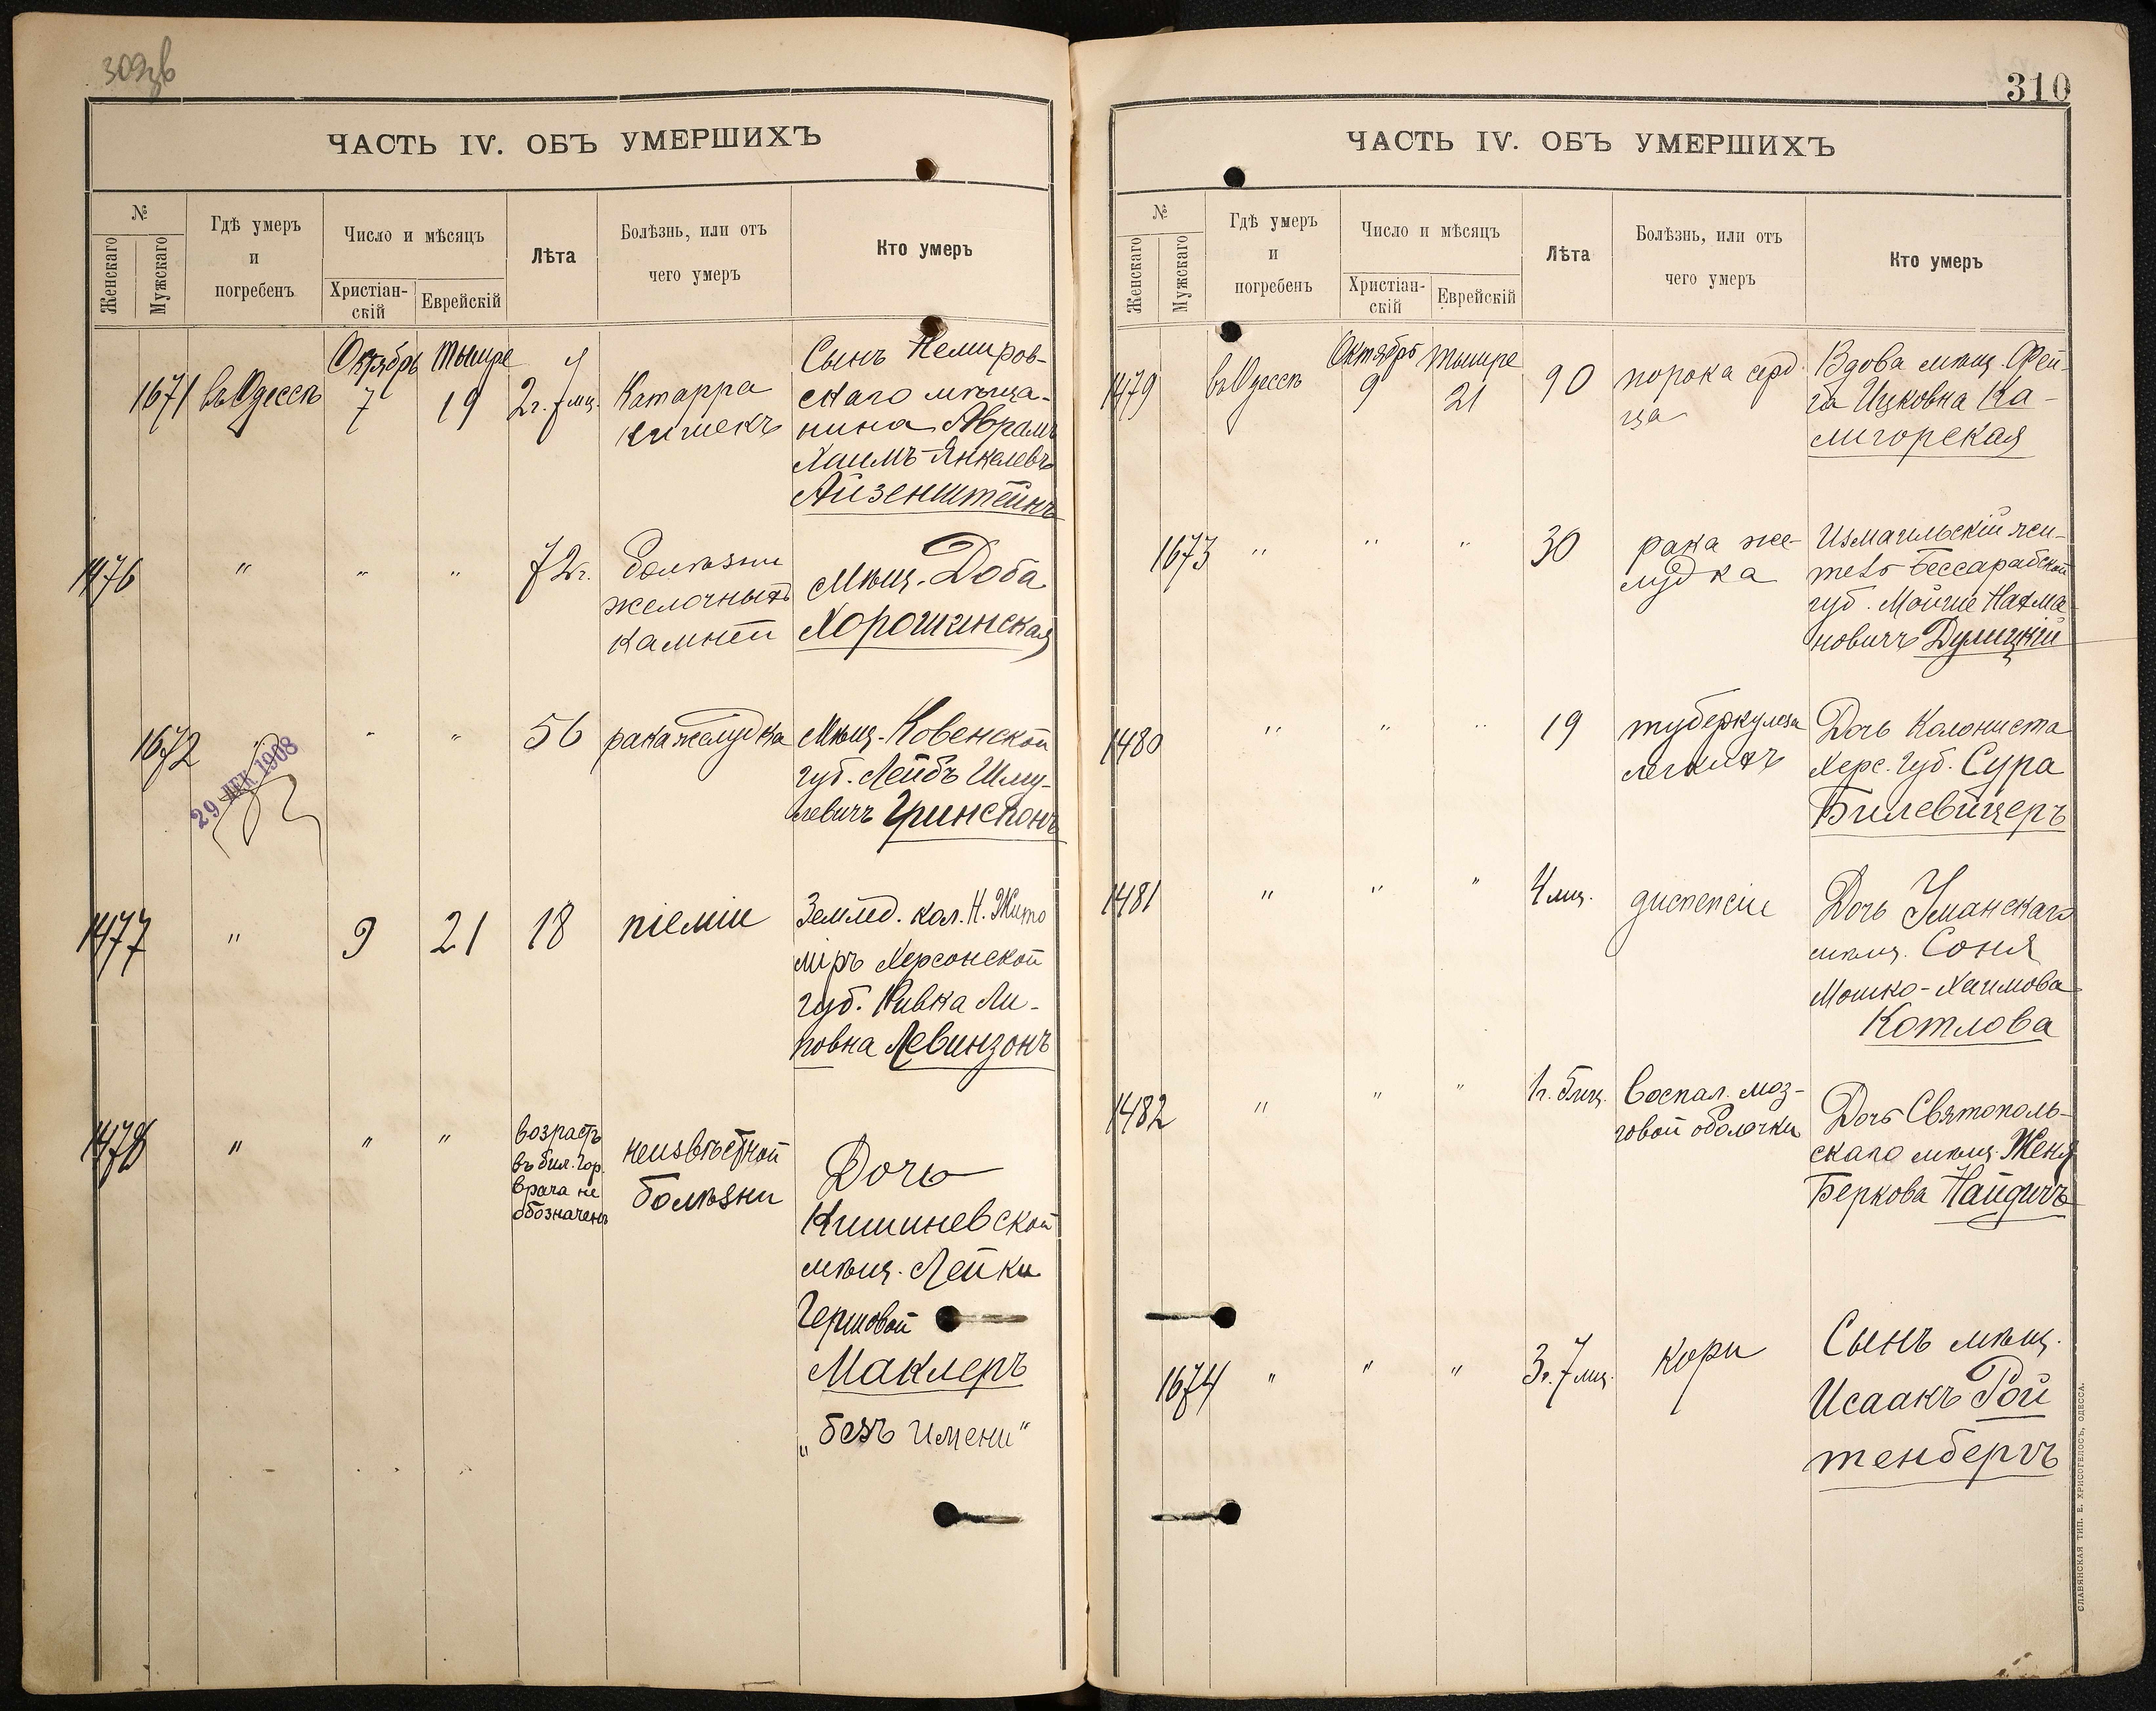 309зв
ЧАСТЬ IV. ОБЪ УМЕРШИХЪ
№
Женскаго
Мужскаго
Гдѣ умеръ
и
погребенъ
Число и мѣсяцъ
Христіан-
скій
Еврейскій
Лѣта
Болѣзнь, или отъ
чего умеръ
Кто умеръ
Октябрь Тышре
1671 въ Одессѣ 7 19 2г. 7 мц. Катарра
кишекъ
Сынъ Немиров-
скаго мѣща-
нина Аврамъ
Хаимъ-Янкелевъ
Айзенштейнъ
1476 " " " 72г. болѣзни
желочныхъ
камней
Мѣщ. Доба
Хорошкинская
1672 " " " 56 рака желудка
Мѣщ. Ковенской
губ. Лейбъ Шму-
левичъ Гринспонъ
29 ДЕК 1908
1477 " 9 21 18 піеміи
Землед. кол. Н. Жито
міръ Херсонской
губ. Ривка Ли-
повна Левинзонъ
1478 " " " возрастъ
въ бил. гор.
врача не
обозначенъ
неизвѣстной
болѣзни
Дочь
Кишиневской
мѣщ. Лейки
Гершовой
Маклеръ
„безъ имени"
310
ЧАСТЬ IV. ОБЪ УМЕРШИХЪ
№
Женскаго
Мужскаго
Гдѣ умеръ
и
погребенъ
Число и мѣсяцъ
Христіан-
скій
Еврейскій
Лѣта
Болѣзнь, или отъ
чего умеръ
Кто умеръ
Октябрь Тышре
1479 въ Одессѣ 9 21 90 порока серд-
ца
Вдова мѣщ. Фей-
га Ицковна Ка-
лигорская
1673 " " " 30 рака же-
лудка
Измаильскій жи-
тель Бессарабской
губ. Мойше Нахма-
новичъ Дулицкій
1480 " " " 19 туберкулеза
легкихъ
Дочь Колониста
Херс. Губ. Сура
Билевицеръ
1481 " " " 4 мц. диспепсіи
Дочь Уманскаго
мѣщ. Соня
Мошко-Хаимова
Котлова
1482 " " " 1г. 5 мц. воспал. моз-
говой оболочки
Дочь Святополь-
скаго мѣщ. Женя
Беркова Найдичъ
1674 " " " 3г. 7 мц. кори
Сынъ мѣщ.
Исаакъ Рой
тенбергъ
СЛАВЯНСКАЯ ТИП. Е. ХРИСОГЕЛОСЪ, ОДЕССА.